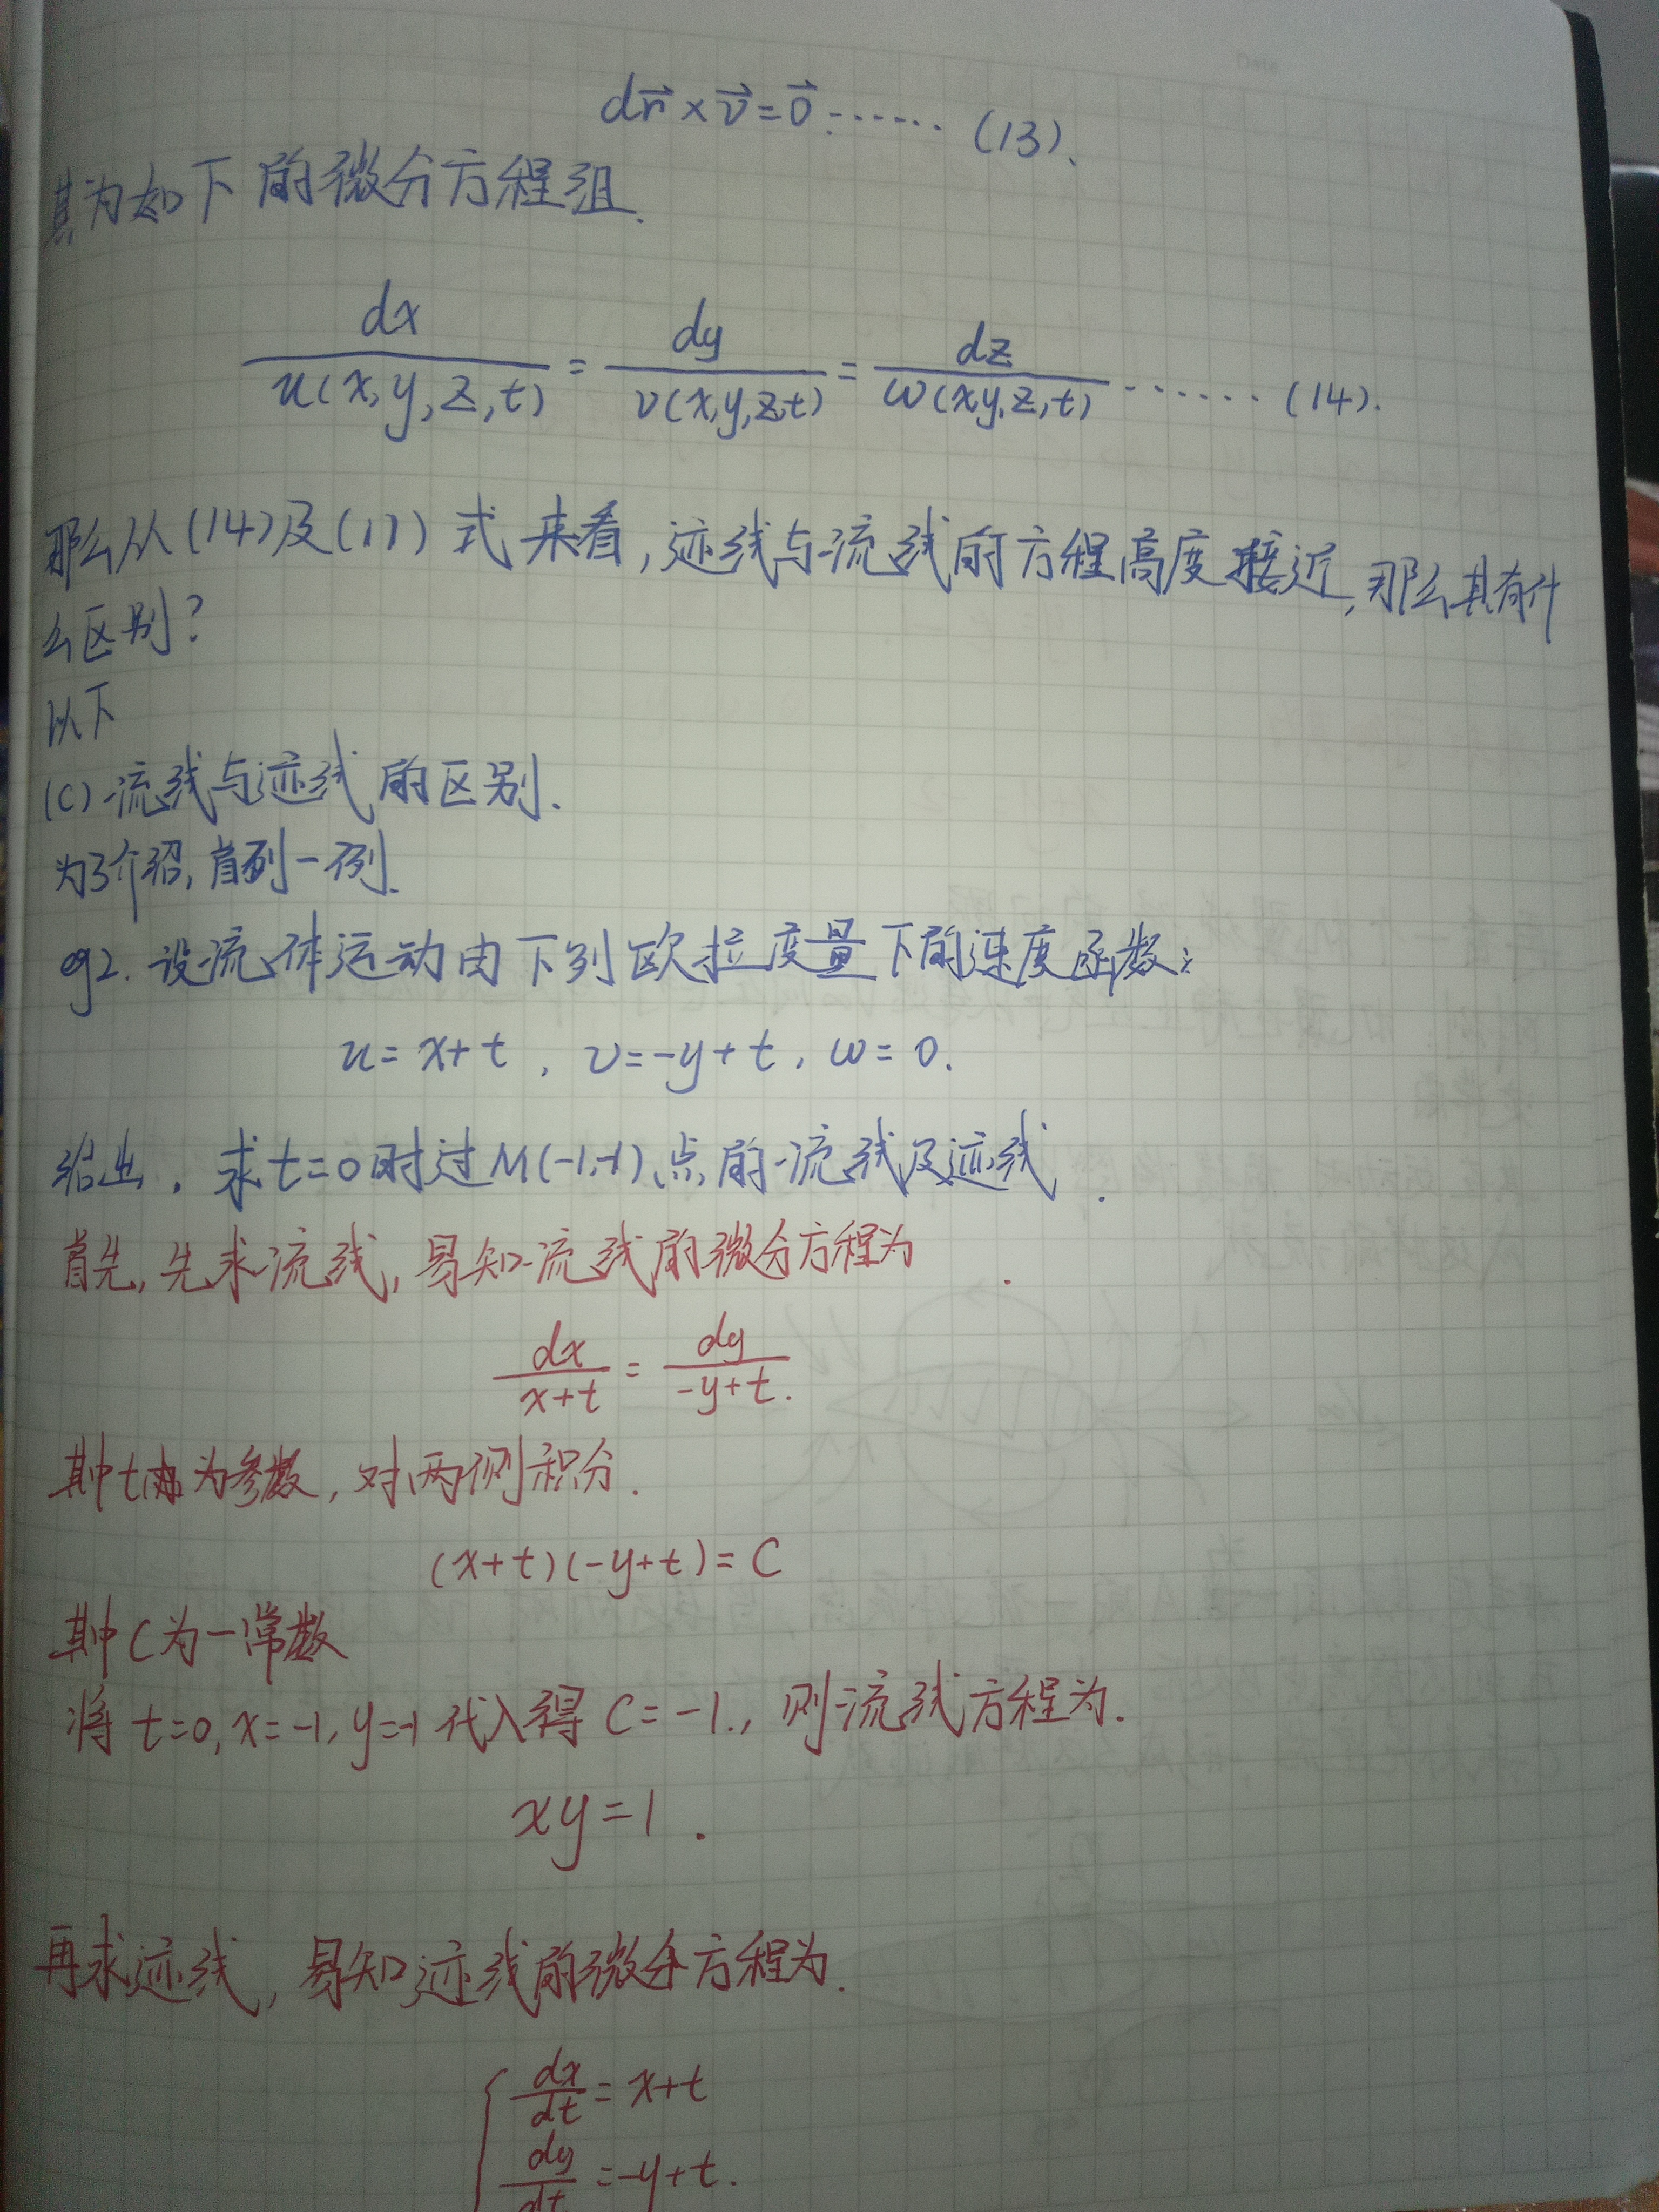 Date
dr⃗×v⃗=0⃗ ······ (13).
其为如下的微分方程组.
dx/u(x,y,z,t) = dy/v(x,y,z,t) = dz/w(x,y,z,t) ······ (14).
那么从(14)及(11)式来看,迹线与流线的方程高度接近,那么其有什
么区别?
以下
(C)流线与迹线的区别.
为了介绍,首列一例.
eg2. 设流体运动由下列欧拉度量下的速度函数:
u=x+t, v=-y+t, w=0.
给出. 求t=0时过M(-1,-1)点的流线及迹线.
首先,先求流线,易知流线的微分方程为
dx/(x+t) = dy/(-y+t).
其中t为参数,对两侧积分.
(x+t)(-y+t)=C
其中C为一常数
将t=0,x=-1,y=-1代入得C=-1.,则流线方程为.
xy=1.
再求迹线,易知迹线的微分方程为.
{ dx/dt = x+t
dy/dt = -y+t.